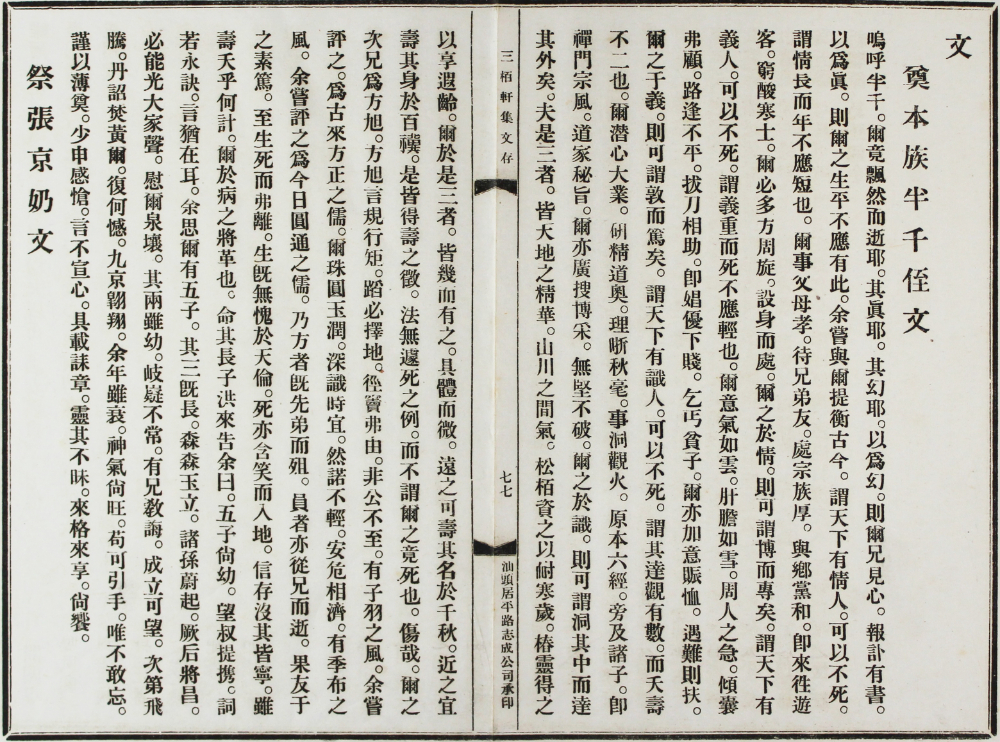 文
奠本族半千侄文
嗚呼半千。爾竟飄然而逝耶。其眞耶。其幻耶。以爲幻。則爾兄見心。報訃有書。
以爲眞。則爾之生平不應有此。余嘗與爾提衡古今。謂天下有情人。可以不死。
謂情長而年不應短也。爾事父母孝。待兄弟友。處宗族厚。與鄕黨和。卽來徃遊
客。窮酸寒士。爾必多方周旋。設身而處。爾之於情。則可謂博而專矣。謂天下有
義人。可以不死。謂義重而死不應輕也。爾意氣如雲。肝膽如雪。周人之急。傾囊
弗顧。路逢不平。拔刀相助。卽娼優下賤。乞丐貧子。爾亦加意賑恤。遇難則扶。
爾之于義。則可謂敦而篤矣。謂天下有識人。可以不死。謂其達觀有數。而夭壽
不二也。爾潛心大業。硏精道奥。理晰秋毫。事洞觀火。原本六經。旁及諸子。卽
禪門宗風。道家秘旨。爾亦廣搜博采。無堅不破。爾之於識。則可謂洞其中而達
其外矣。夫是三者。皆天地之精華。山川之間氣。松栢資之以耐寒歲。椿靈得之
三栢軒集文存
七七
汕頭居平路志成公司承印
以享遐齡。爾於是三者。皆幾而有之。具體而微。遠之可壽其名於千秋。近之宜
壽其身於百禩。是皆得壽之徵。法無遽死之例。而不謂爾之竟死也。傷哉。爾之
次兄爲方旭。方旭言規行矩。蹈必擇地。徑竇弗由。非公不至。有子羽之風。余嘗
評之。爲古來方正之儒。爾珠圓玉潤。深識時宜。然諾不輕。安危相濟。有季布之
風。余嘗評之爲今日圓通之儒。乃方者旣先弟而殂。員者亦從兄而逝。果友于
之素篤。至生死而弗離。生旣無愧於天倫。死亦含笑而入地。信存沒其皆寧。雖
壽夭乎何計。爾於病之將革也。命其長子洪來告余曰。五子尙幼。望叔提携。詞
若永訣。言猶在耳。余思爾有五子。其三旣長。森森玉立。諸孫蔚起。厥后將昌。
必能光大家聲。慰爾泉壤。其兩雖幼。岐嶷不常。有兄敎誨。成立可望。次第飛
騰。丹詔焚黃爾。復何憾。九京翺翔。余年雖衰。神氣尙旺。苟可引手。唯不敢忘。
謹以薄奠。少申感愴。言不宣心。具載誄章。靈其不昧。來格來享。尙饗。
祭張京奶文